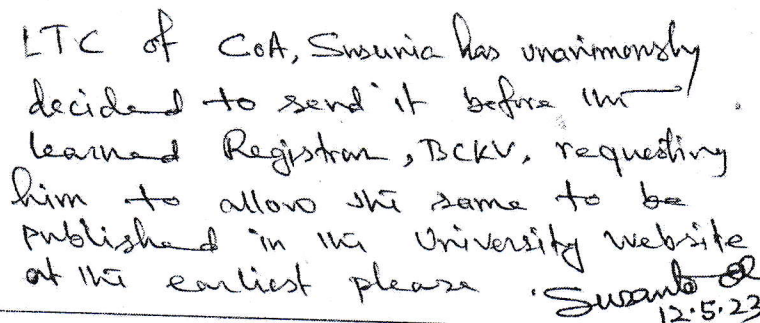 LTC of CoA, Susunia has unanimously
decided to send it before the
learned Registrar, BCKV, requesting
him to allow the same to be
published in the University website
at the earliest please.
Susanta
12.5.23